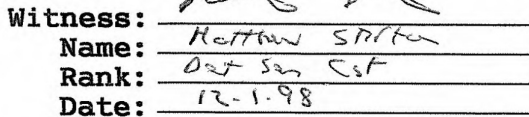 Witness:
Name: Matthew
Rank: Det Sen Cst
Date: 12-1-98